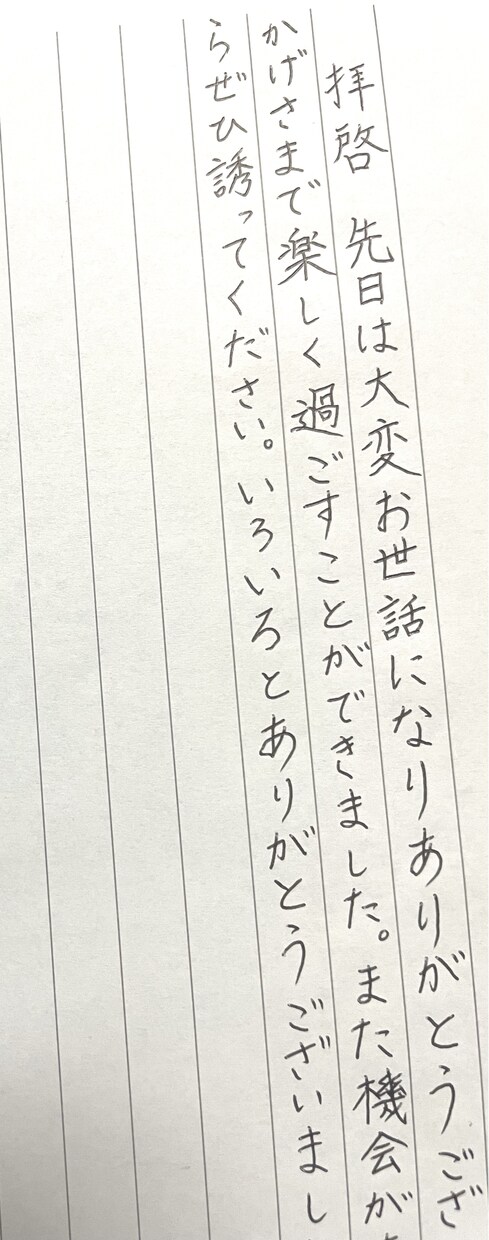 拝啓　先日は大変お世話になりありがとうござ
かげさまで楽しく過ごすことができました。また機会が
らぜひ誘ってください。いろいろとありがとうございまし